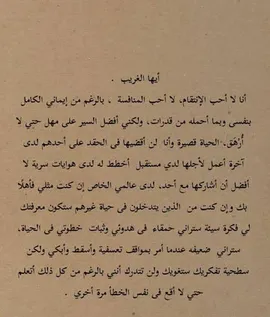 أيها الغريب .
أنا لا أحب الإنتقام، لا أحب المنافسة ، بالرغم من إيماني الكامل
بنفسى وبما أحمله من قدرات، ولكني أفضل السير على مهل حتي لا
أُرْهَق.. الحياة قصيرة وأنا لن أقضيها فى الحقد على أحدهم لدى
آخرة أعمل لأجلها لدي مستقبل أخطط له لدى هوايات سرية لا
أفضل أن أشاركها مع أحد، لدى عالمي الخاص إن كنت مثلي فأهلًا
بك وإن كنت من الذين يتدخلون في حياة غيرهم ستكون معرفتك
لي فكرة سيئة ستراني حمقاء فى هدوئي وثبات خطوتي في الحياة،
ستراني ضعيفه عندما أمر بمواقف تعسفية وأسقط وأبكي ولكن
سطحية تفكيرك ستغويك ولن تتدرك أنني بالرغم من كل ذلك أتعلم
حتي لا أقع فى نفس الخطأ مرة أخري .